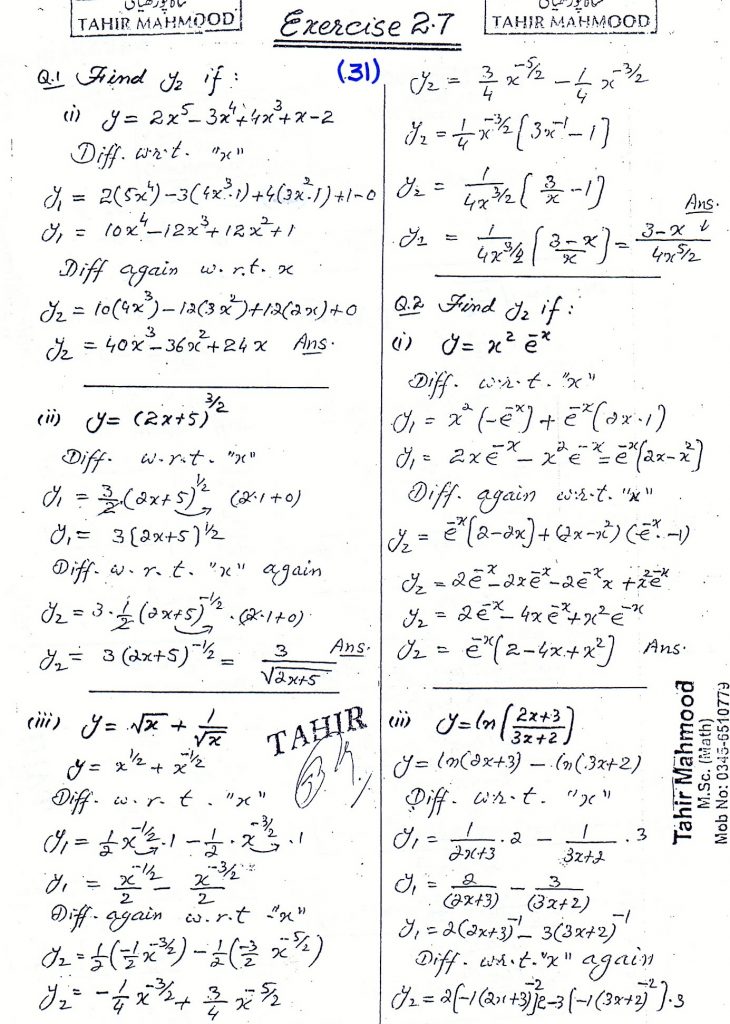 TAHIR MAHMOOD
Exercise 2.7
TAHIR MAHMOOD
(31)
Q.1 Find y₂ if :
(i) y = 2x⁵ - 3x⁴ + 4x³ + x - 2
Diff. w.r.t. "x"
y₁ = 2(5x⁴) - 3(4x³·1) + 4(3x²·1) + 1 - 0
y₁ = 10x⁴ - 12x³ + 12x² + 1
Diff again w.r.t. x
y₂ = 10(4x³) - 12(3x²) + 12(2x) + 0
y₂ = 40x³ - 36x² + 24x Ans.
(ii) y = (2x+5)^3/2
Diff. w.r.t. "x"
y₁ = 3/2 (2x+5)^1/2 (2·1+0)
y₁ = 3(2x+5)^1/2
Diff. w.r.t. "x" again
y₂ = 3·1/2 (2x+5)^-1/2 · (2·1+0)
y₂ = 3(2x+5)^-1/2 = 3/√2x+5 Ans.
(iii) y = √x + 1/√x
y = x^1/2 + x^-1/2
Diff. w.r.t. "x"
y₁ = 1/2 x^-1/2 · 1 - 1/2 · x^-3/2 · 1
y₁ = x^-1/2/2 - x^-3/2/2
Diff. again w.r.t "x"
y₂ = 1/2(-1/2 x^-3/2) - 1/2(-3/2 x^-5/2)
y₂ = -1/4 x^-3/2 + 3/4 x^-5/2
TAHIR
y₂ = 3/4 x^-5/2 - 1/4 x^-3/2
y₂ = 1/4 x^-3/2 [3x^-1 - 1]
y₂ = 1/4x^3/2 [3/x - 1]
Ans.
y₂ = 1/4x^3/2 [3-x/x] = 3-x/4x^5/2
Q.2 Find y₂ if :
(i) y = x² e^-x
Diff. w.r.t. "x"
y₁ = x²(-e^-x) + e^-x(2x·1)
y₁ = 2xe^-x - x²e^-x = e^-x[2x-x²]
Diff. again w.r.t. "x"
y₂ = e^-x[2-2x] + (2x-x²)(e^-x·-1)
y₂ = 2e^-x - 2xe^-x - 2e^-x x + x²e^-x
y₂ = 2e^-x - 4xe^-x + x²e^-x
y₂ = e^-x[2-4x+x²] Ans.
(ii) y = ln[2x+3/3x+2]
y = ln(2x+3) - ln(3x+2)
Diff. w.r.t. "x"
y₁ = 1/2x+3 · 2 - 1/3x+2 · 3
y₁ = 2/(2x+3) - 3/(3x+2)
y₁ = 2(2x+3)^-1 - 3(3x+2)^-1
Diff. w.r.t. "x" again
y₂ = 2[-1(2x+3)^-2]2 - 3[-1(3x+2)^-2]·3
Tahir Mahmood
M.Sc. (Math)
Mob No: 0345-6510779